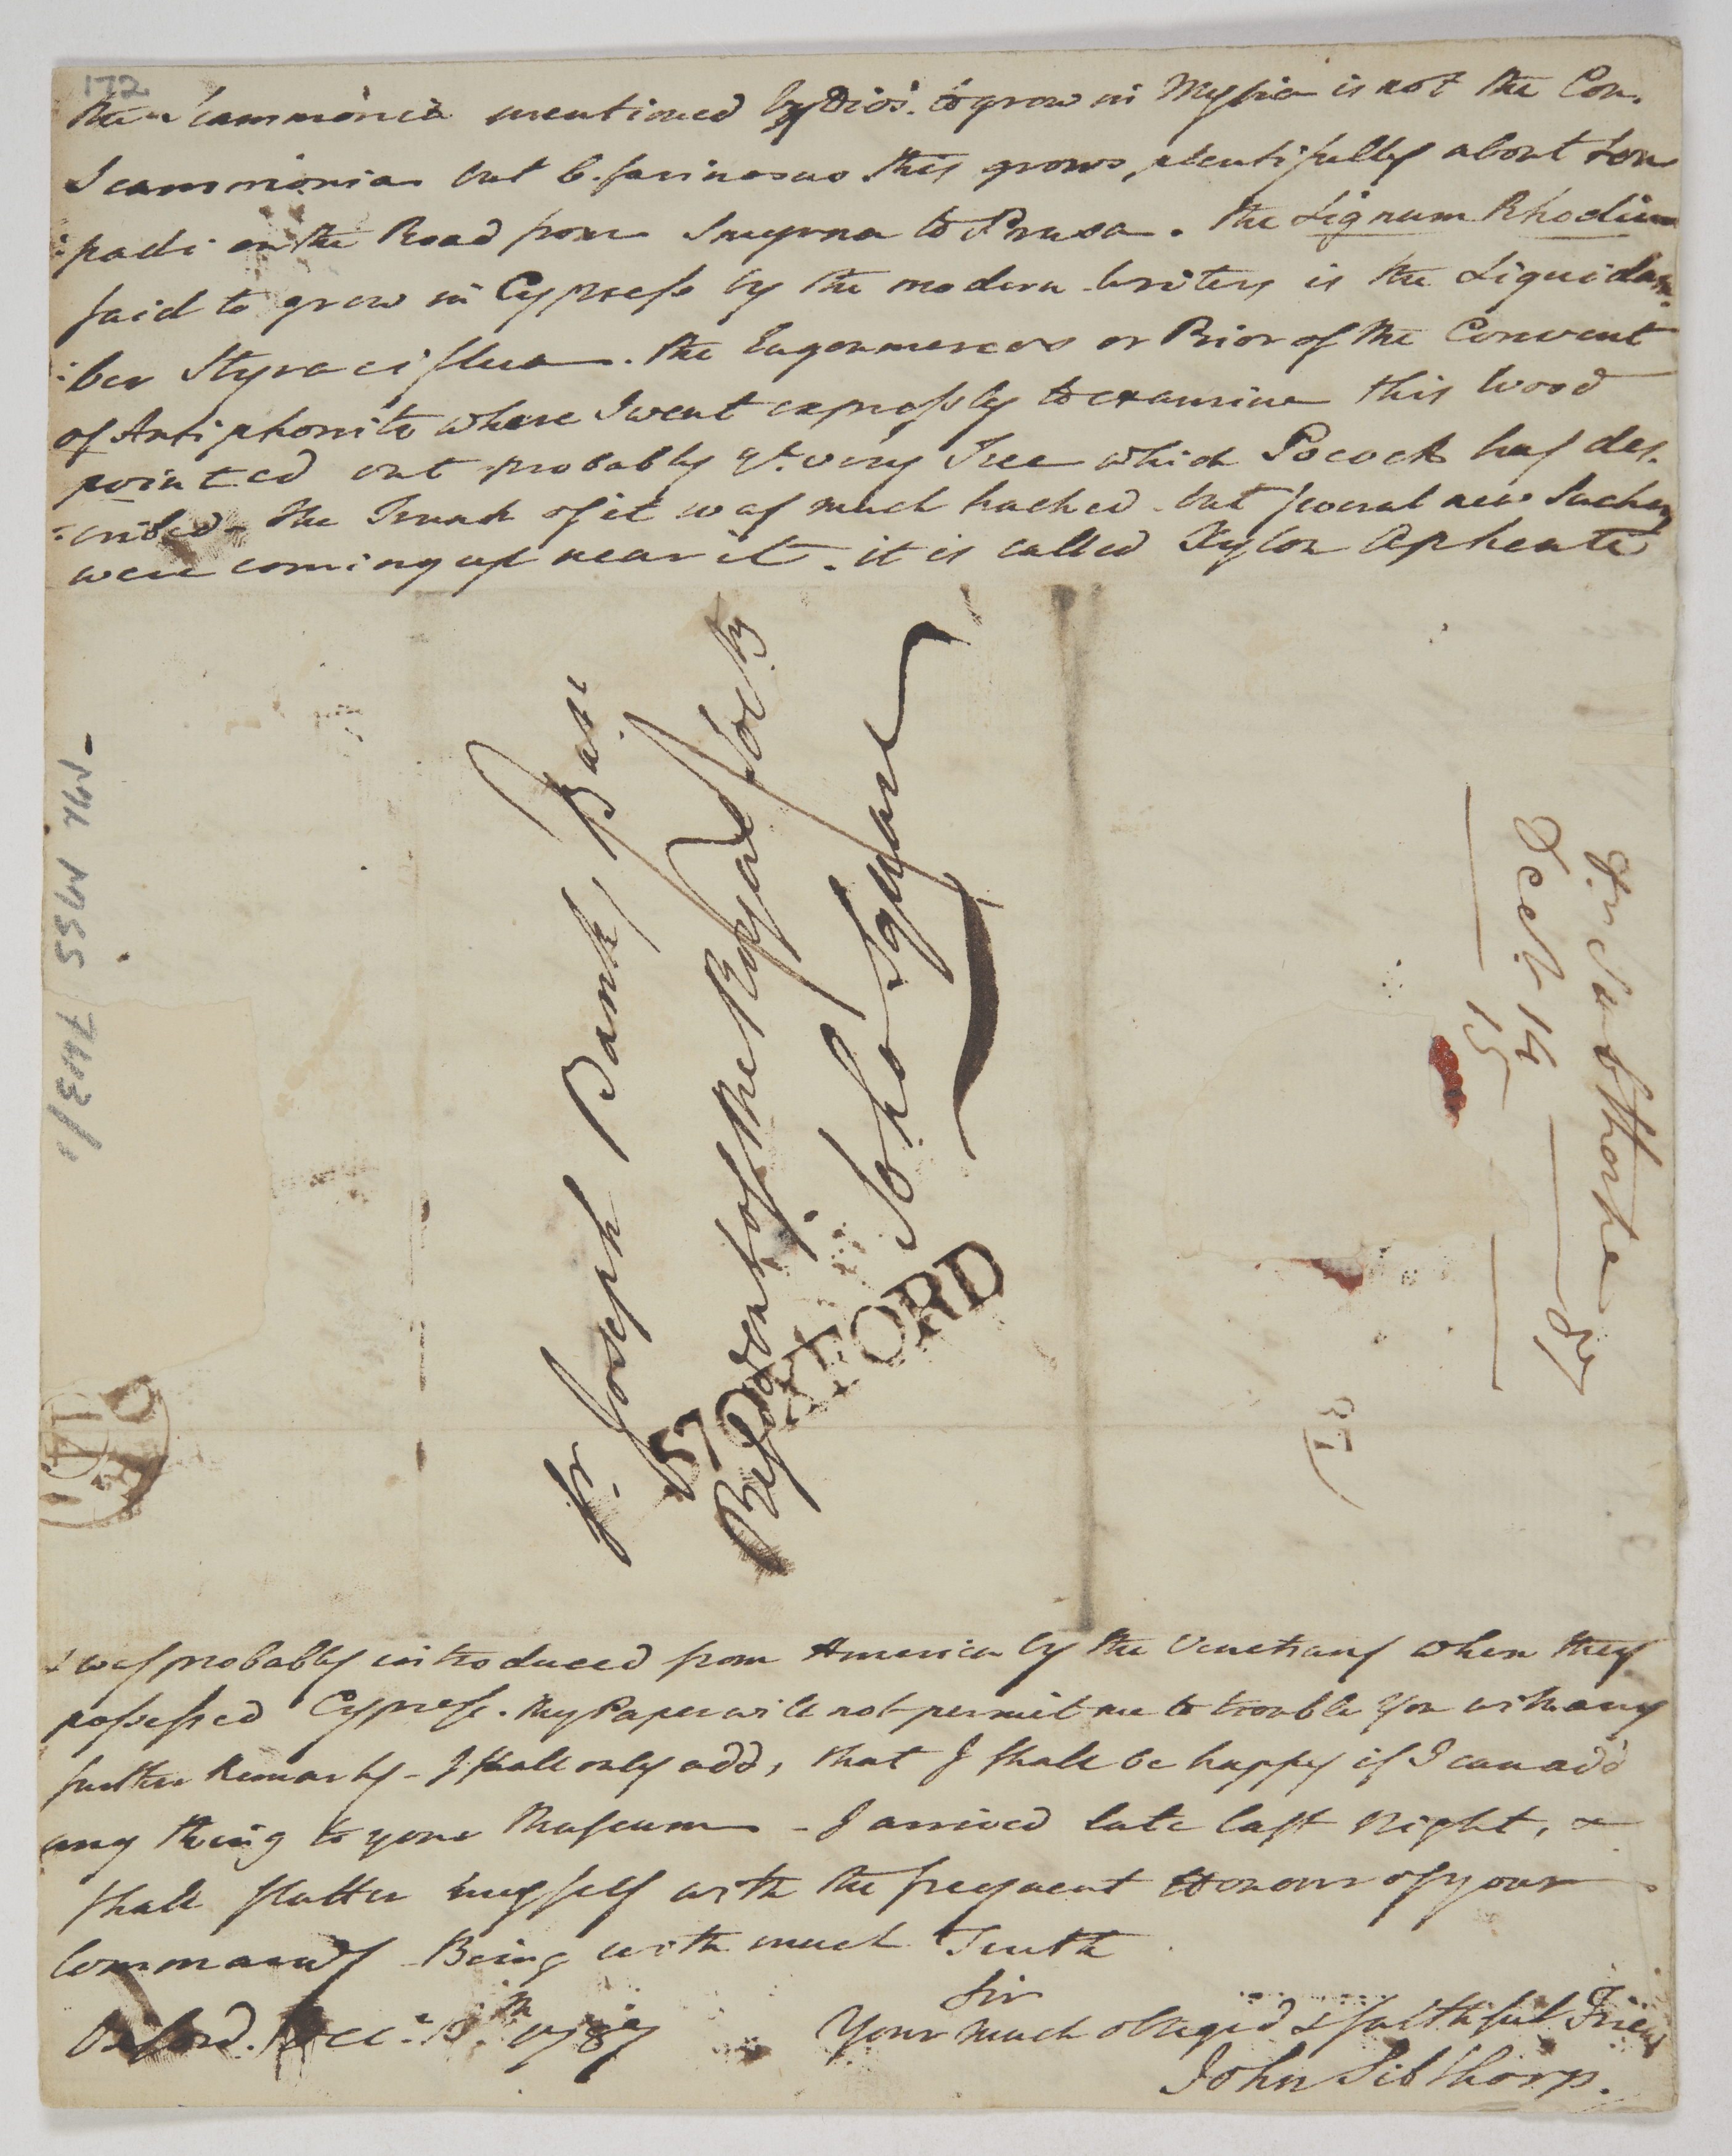 172
the Scammonia mentioned by Dios. to grow in Mysia is not the Con.
Scammonia but C. farinosus this grows plentifully about
:padi on the Road from Smyrna to Prusa. the Lignum Rhodium
said to grow in Cypress by the modern writers is the Liquidam:
:ber Styraciflua. the or Prior of the Convent
of Antiphoniti where I went expressly to examine this Wood
pointed out probably yt. very Tree which Pocock has des:
:cribed - the Trunk of it was much hacked - but several new Suckers
were coming up near it. it is called Xylon Aphenti
Sr. Joseph Banks Bart
President of the Royal Society
Soho Square
57 OXFORD
MM MSS 7413/1
Dr. Sibthorpe
Decr. 14 87
15
D
14
87
& was probably introduced from America by the Venetians when they
possessed Cypress. My Paper will not permit me to trouble You with any
further Remarks - I shall only add, that I shall be happy if I can add
any thing to your Museum - I arrived late last Night, &
shall flatter myself with the frequent Honour of your
Commands Being with much Truth
Sir
Oxford. Decr. 13th 1787
Your much obliged & faithful Friend
John Sibthorp.